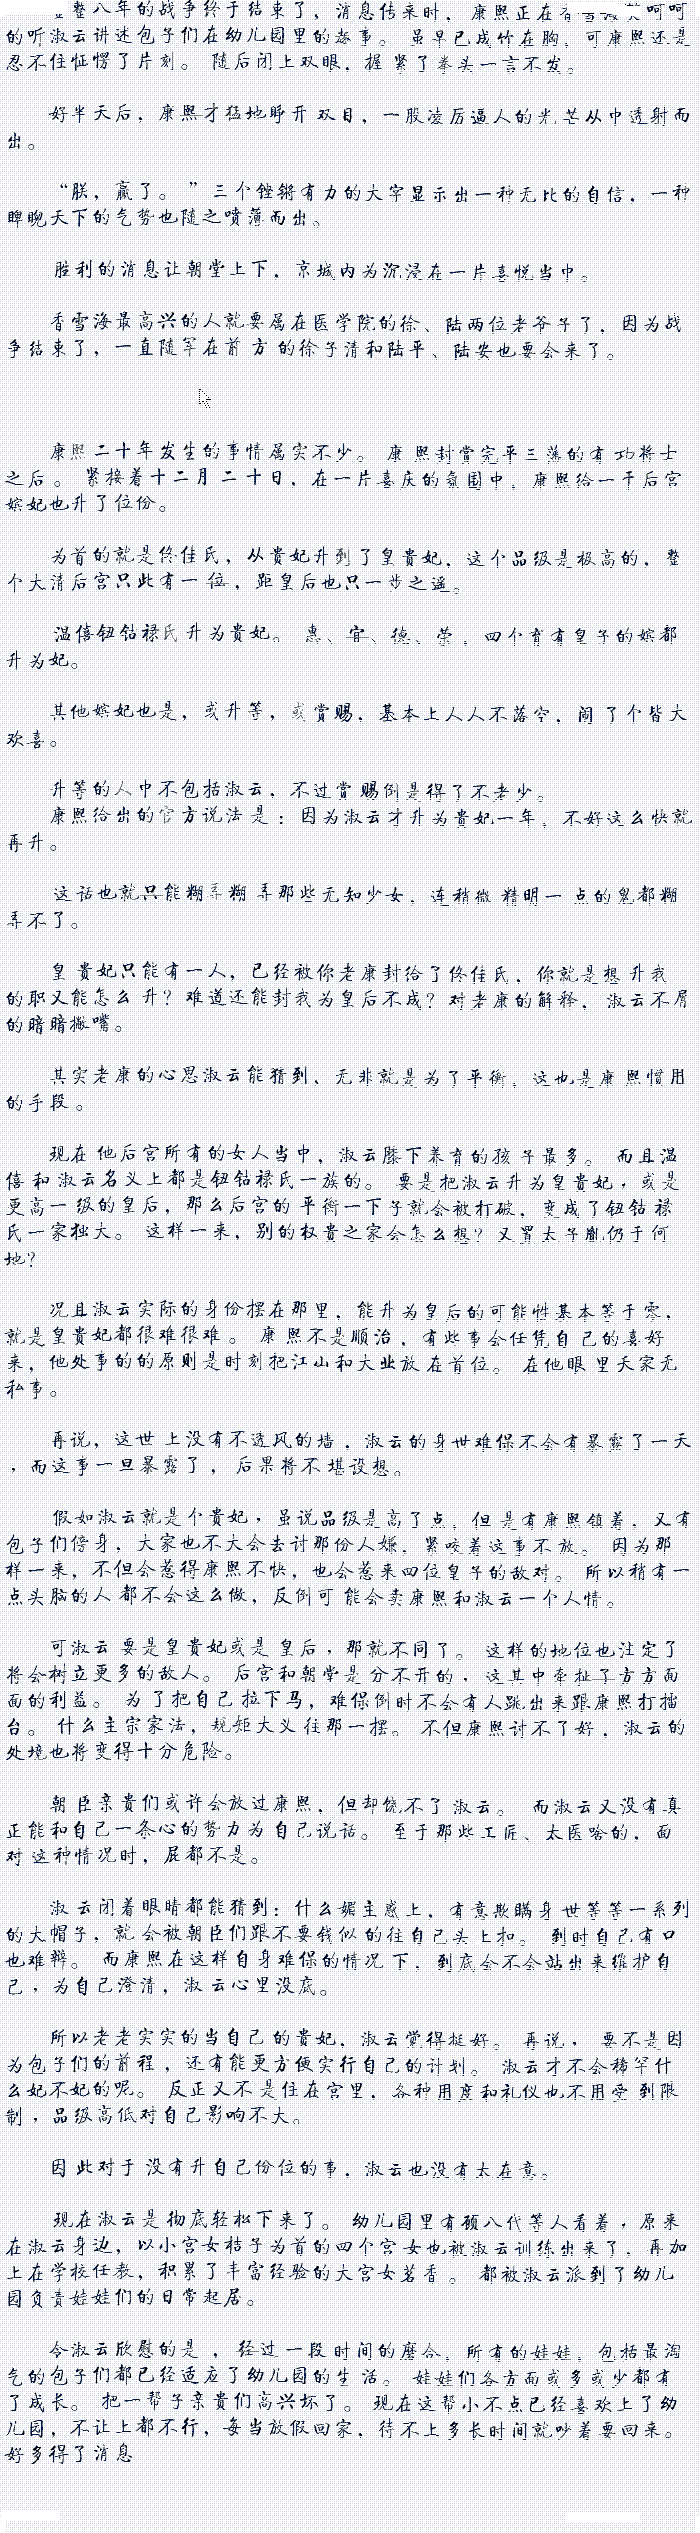 整八年的战争终于结束了，消息传来时，康熙正在香雪海笑呵呵
的听淑云讲述包子们在幼儿园里的趣事。 虽早已成竹在胸，可康熙还是
忍不住怔愣了片刻。 随后闭上双眼，握紧了拳头一言不发。
好半天后，康熙才猛地睁开双目，一股凌厉逼人的光芒从中透射而
出。
“朕，赢了。 ”三个铿锵有力的大字显示出一种无比的自信，一种
睥睨天下的气势也随之喷薄而出。
胜利的消息让朝堂上下，京城内为沉浸在一片喜悦当中。
香雪海最高兴的人就要属在医学院的徐、陆两位老爷子了，因为战
争结束了，一直随军在前方的徐子清和陆平、陆安也要会来了。
康熙二十年发生的事情属实不少。 康熙封赏完平三藩的有功将士
之后。 紧接着十二月二十日，在一片喜庆的氛围中，康熙给一干后宫
嫔妃也升了位份。
为首的就是佟佳氏，从贵妃升到了皇贵妃，这个品级是极高的，整
个大清后宫只此有一位，距皇后也只一步之遥。
温僖钮钴禄氏升为贵妃。 惠、宜、德、荣，四个育有皇子的嫔都
升为妃。
其他嫔妃也是，或升等，或赏赐，基本上人人不落空，闹了个皆大
欢喜。
升等的人中不包括淑云，不过赏赐倒是得了不老少。
康熙给出的官方说法是：因为淑云才升为贵妃一年，不好这么快就
再升。
这话也就只能糊弄糊弄那些无知少女，连稍微精明一点的鬼都糊
弄不了。
皇贵妃只能有一人，已经被你老康封给了佟佳氏，你就是想升我
的职又能怎么升？难道还能封我为皇后不成？对老康的解释，淑云不屑
的暗暗撇嘴。
其实老康的心思淑云能猜到，无非就是为了平衡，这也是康熙惯用
的手段。
现在他后宫所有的女人当中，淑云膝下养育的孩子最多。 而且温
僖和淑云名义上都是钮钴禄氏一族的。 要是把淑云升为皇贵妃，或是
更高一级的皇后，那么后宫的平衡一下子就会被打破，变成了钮钴禄
氏一家独大。 这样一来，别的权贵之家会怎么想？又置太子胤礽于何
地？
况且淑云实际的身份摆在那里，能升为皇后的可能性基本等于零，
就是皇贵妃都很难很难。 康熙不是顺治，有些事会任凭自己的喜好
来，他处事的的原则是时刻把江山和大业放在首位。 在他眼里天家无
私事。
再说，这世上没有不透风的墙，淑云的身世难保不会有暴露了一天
，而这事一旦暴露了，后果将不堪设想。
假如淑云就是个贵妃，虽说品级是高了点，但是有康熙领着，又有
包子们傍身，大家也不大会去讨那份人嫌，紧咬着这事不放。 因为那
样一来，不但会惹得康熙不快，也会惹来四位皇子的敌对。 所以稍有一
点头脑的人都不会这么做，反倒可能会卖康熙和淑云一个人情。
可淑云要是皇贵妃或是皇后，那就不同了。 这样的地位也注定了
将会树立更多的敌人。 后宫和朝堂是分不开的，这其中牵扯了方方面
面的利益。 为了把自己拉下马，难保倒时不会有人跳出来跟康熙打擂
台。 什么主宗家法，规矩大义往那一摆。 不但康熙讨不了好，淑云的
处境也将变得十分危险。
朝臣亲贵们或许会放过康熙，但却饶不了淑云。 而淑云又没有真
正能和自己一条心的势力为自己说话。 至于那些工匠、太医啥的，面
对这种情况时，屁都不是。
淑云闭着眼睛都能猜到：什么媚主惑上，有意欺瞒身世等等一系列
的大帽子，就会被朝臣们跟不要钱似的往自己头上扣。 到时自己有口
也难辩。 而康熙在这样自身难保的情况下，到底会不会站出来维护自
己，为自己澄清，淑云心里没底。
所以老老实实的当自己的贵妃，淑云觉得挺好。 再说，要不是因
为包子们的前程，还有能更方便实行自己的计划。 淑云才不会稀罕什
么妃不妃的呢。 反正又不是住在宫里，各种用度和礼仪也不用受到限
制，品级高低对自己影响不大。
因此对于没有升自己份位的事，淑云也没有太在意。
现在淑云是彻底轻松下来了。 幼儿园里有顾八代等人看着，原来
在淑云身边，以小宫女桔子为首的四个宫女也被淑云训练出来了，再加
上在学校任教，积累了丰富经验的大宫女茗香。 都被淑云派到了幼儿
园负责娃娃们的日常起居。
令淑云欣慰的是，经过一段时间的磨合，所有的娃娃，包括最淘
气的包子们都已经适应了幼儿园的生活。 娃娃们各方面或多或少都有
了成长。 把一帮子亲贵们高兴坏了。 现在这帮小不点已经喜欢上了幼
儿园，不让上都不行，每当放假回家，待不上多长时间就吵着要回来。
好多得了消息